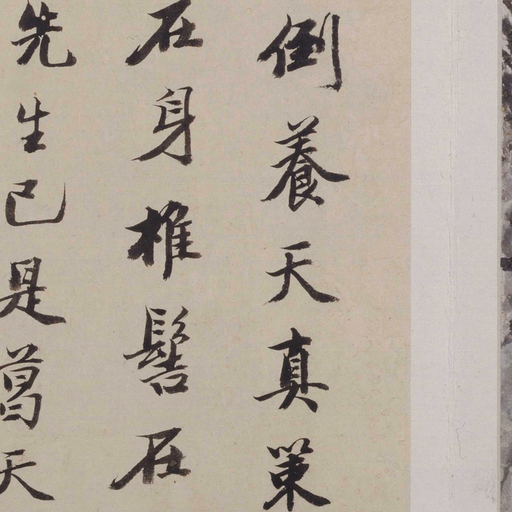 倒養天真策
在身椎髻在
先生已是葛天